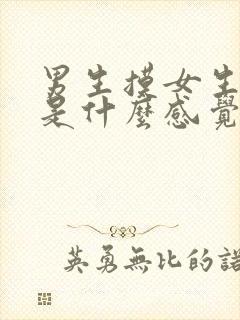 男生摸女生
是什麼感覺
英勇無比的諾